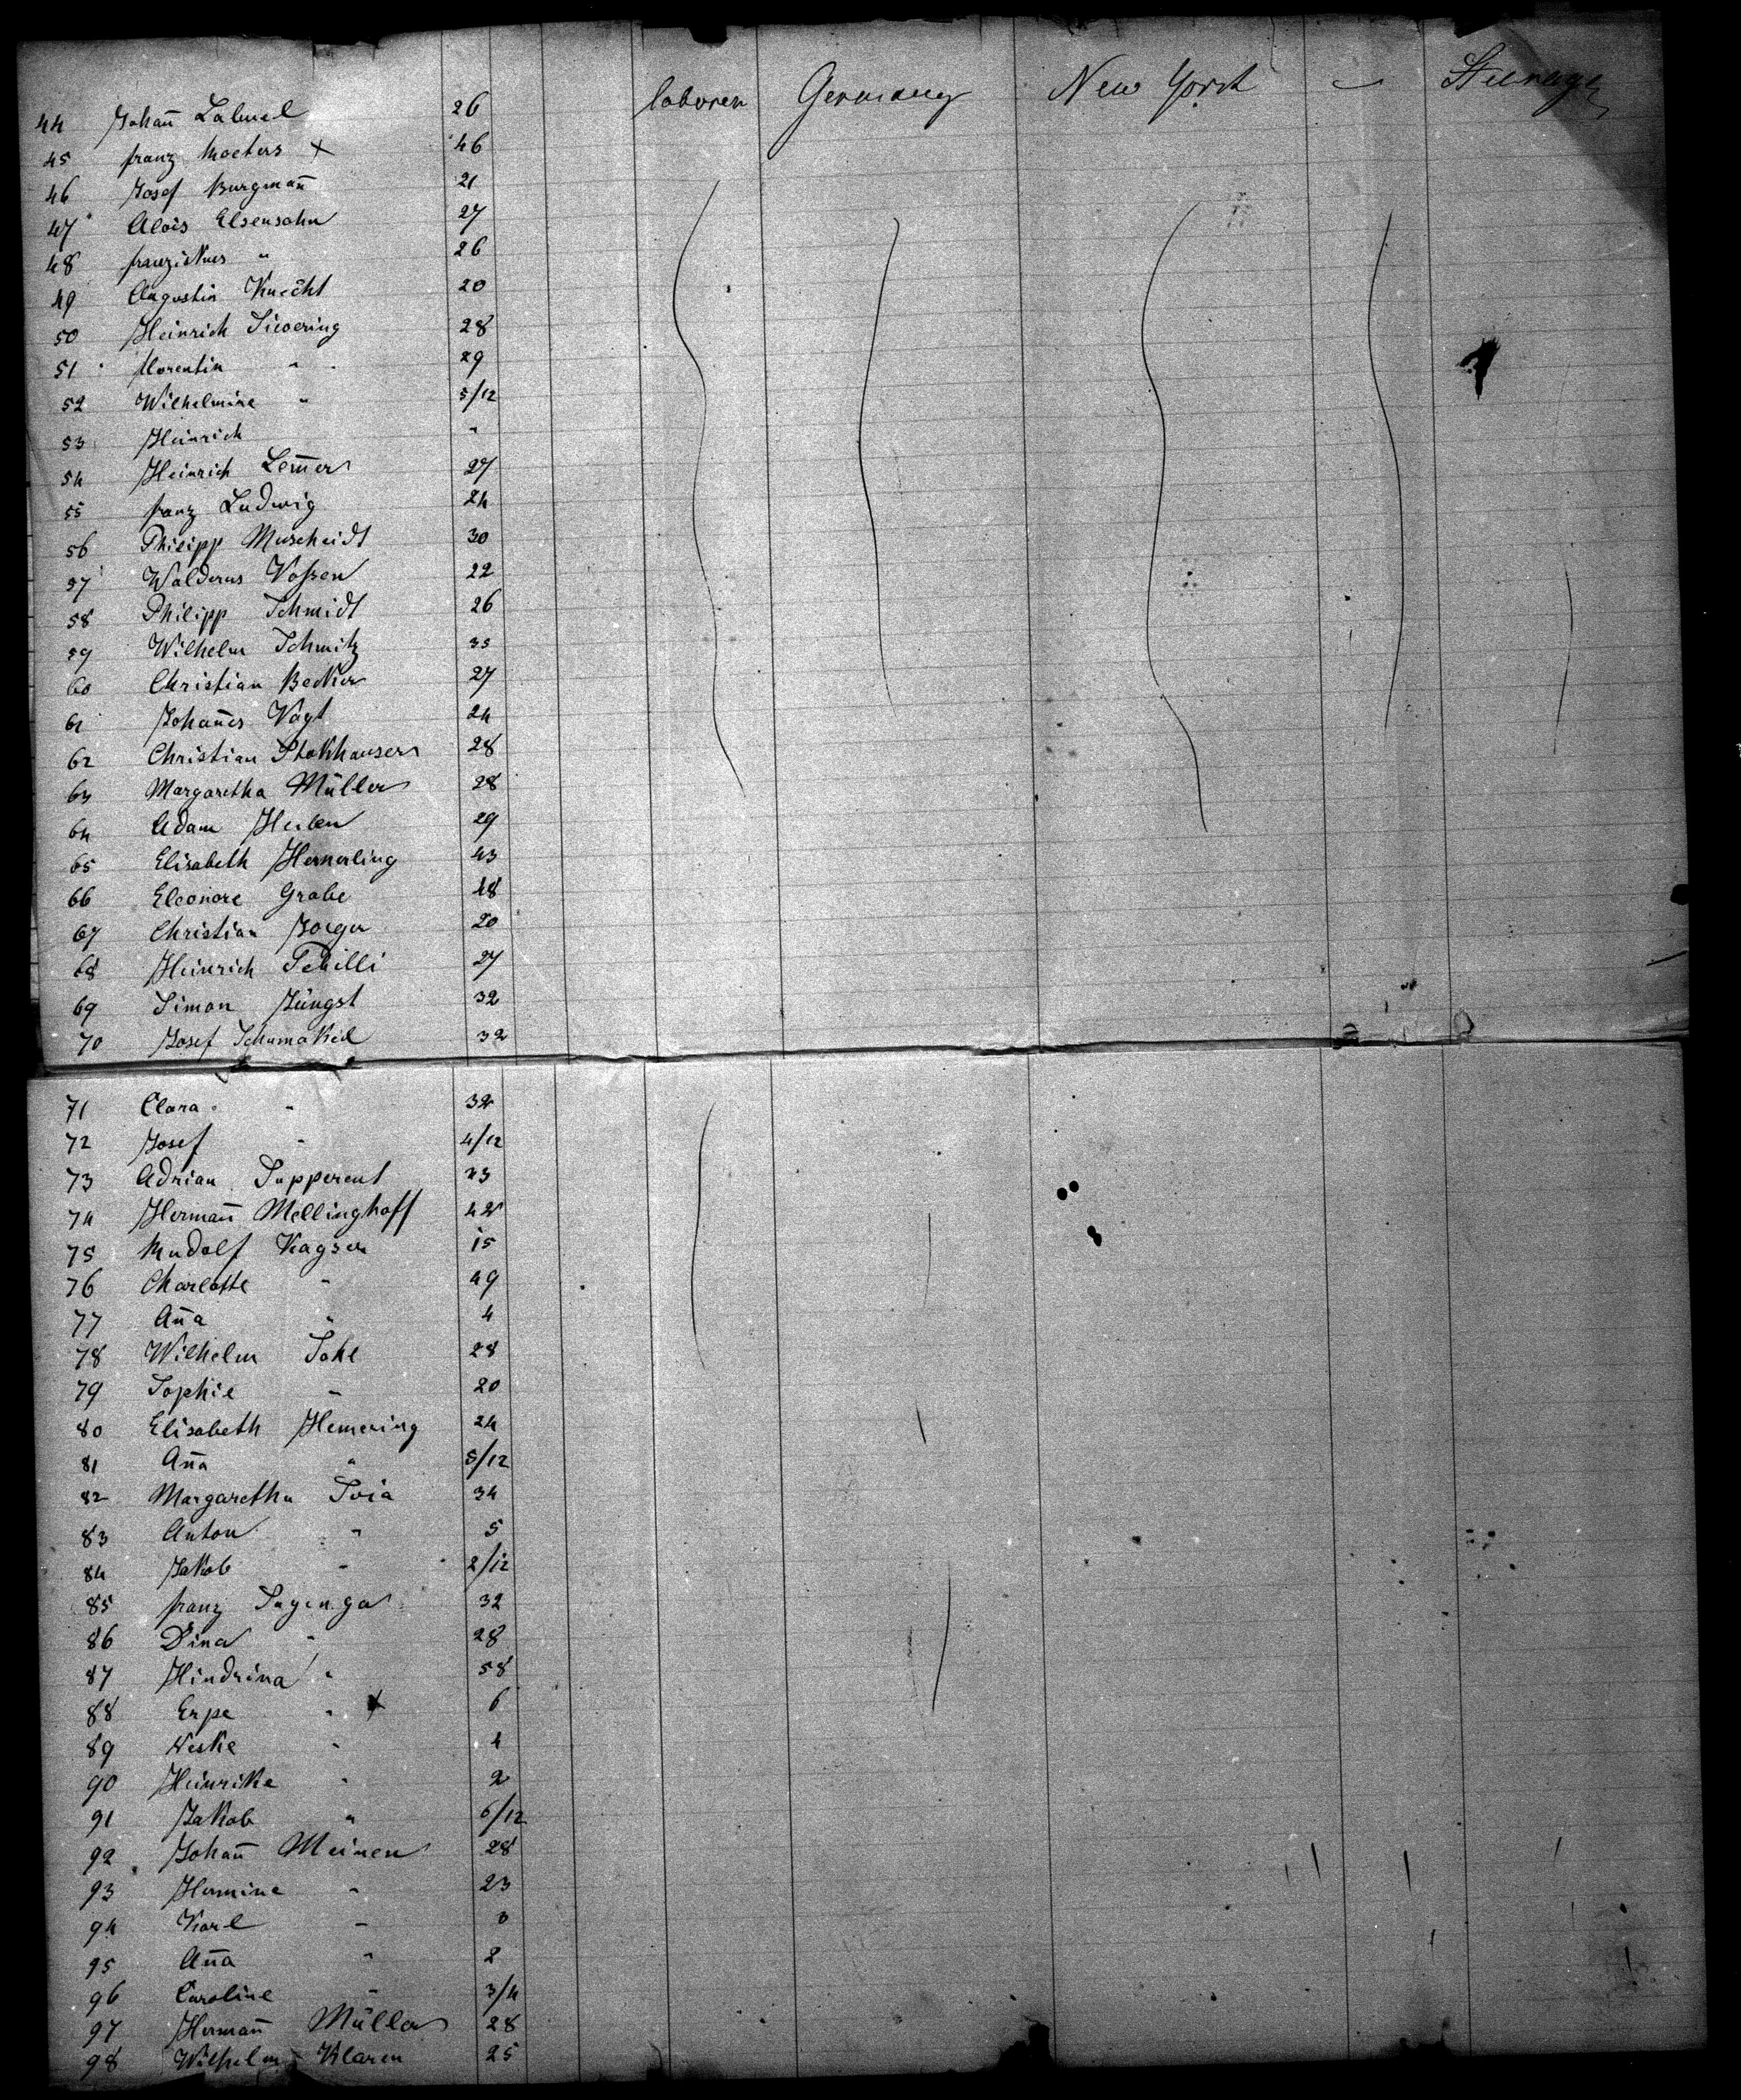 44 Johan̄ Labmel 26 laborer Germany New York — Steerage
45 franz Moeters x 46
46 Josef Burgman̄ 21
47 Alois Elsensohn 27
48 franziskus " 26
49 Augustin Knecht 20
50 Heinrich Sieverding 28
51 florentin " 29
52 Wilhelmine " 5/12
53 Heinrich "
54 Heinrich Lem̄er 27
55 franz Ludwig 24
56 Philipp Muscheidt 30
57 Walderus Voßen 22
58 Philipp Schmidt 26
59 Wilhelm Schmitz 35
60 Christian Becker 27
61 Johan̄es Vogt 24
62 Christian Stokhauser 28
63 Margaretha Müller 28
64 Adam 29
65 Elisabeth Hemerling 43
66 Eleonore Grabe 18
67 Christian Jaeger 20
68 Heinrich Schilli 27
69 Simon Jüngst 32
70 Josef Schumakel 32
71 Clara " 32
72 Josef " 4/12
73 Adrian Supperent 23
74 Herman̄ Mellinghoff 42
75 Rudolf Kayser 15
76 Charlotte " 49
77 An̄a " 4
78 Wilhelm Sohl 28
79 Sophie " 20
80 Elisabeth Hemering 24
81 An̄a " 5/12
82 Margaretha Soia 34
83 Anton " 5
84 Jakob " 2/12
85 franz Sagenga 32
86 Dina " 28
87 Hindrina " 58
88 Erpe " x 6
89 Neske " 4
90 Heinrike " 2
91 Jakob " 6/12
92 Johan̄ Meinen 28
93 Hermine " 23
94 Karl "
95 An̄a " 2
96 Caroline " 3/4
97 Herman̄ Müller 28
98 Wilhelm Klaren 25